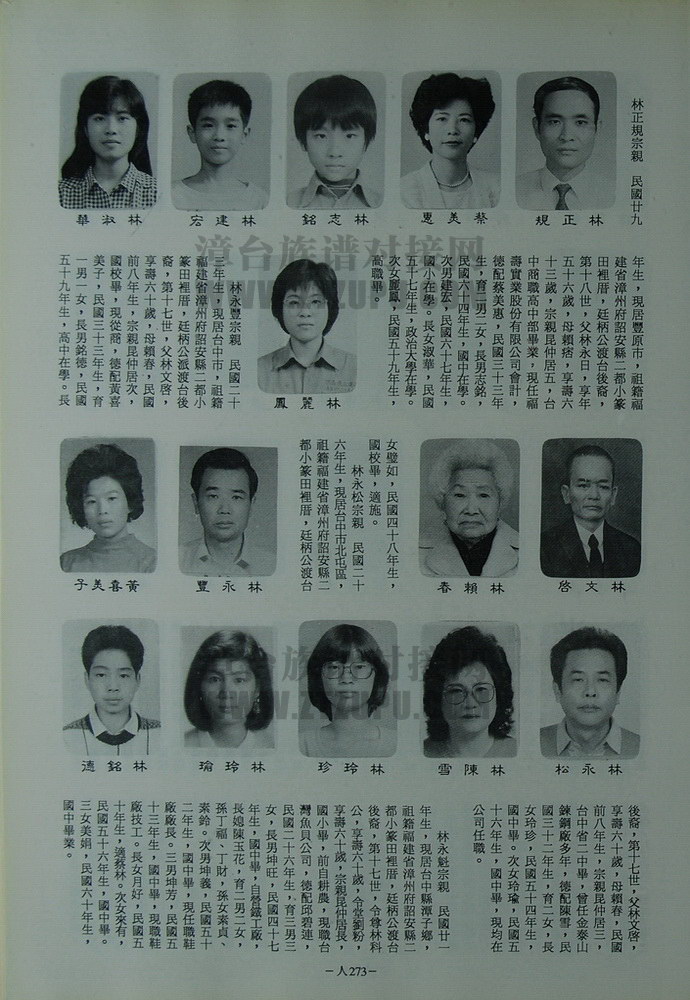 林正規宗親　民國廿九
林正規
蔡美惠
林志銘
林建宏
林淑華
年生，現居豐原市，祖籍福
建省漳州府詔安縣二都小篆
田裡厝，廷柄公渡台後裔，
第十八世，父林永日，享年
五十六歲，母賴痞，享壽六
十三歲，宗親昆仲居五，台
中商職高中部畢業，現任福
壽實業股份有限公司會計，
德配蔡美惠，民國三十三年
生，育二男二女，長男志銘，
民國六十四年生，國中在學。
次男建宏，民國六十七年生，
國小在學。長女淑華，民國
五十七年生，政治大學在學。
次女麗鳳，民國五十九年生，
高職畢。
林麗鳳
林永豐宗親　民國二十
三年生，現居台中市，祖籍
福建省漳州府詔安縣二都小
篆田裡厝，廷柄公派渡台後
裔，第十七世，父林文啓，
享壽六十歲，母賴春，民國
前八年生，宗親昆仲居次，
國校畢，現從商，德配黃喜
美子，民國三十三年生，育
一男一女，長男銘德，民國
五十九年生，高中在學。長
林文啓
林賴春
女璧如，民國四十八年生，
國校畢，適施。
林永松宗親　民國二十
六年生，現居台中市北屯區，
祖籍福建省漳州府詔安縣二
都小篆田裡厝，廷柄公渡台
林永豐
黃喜美子
林永松
林陳雪
林玲珍
林玲瑜
林銘德
後裔，第十七世，父林文啓，
享壽六十歲，母賴春，民國
前八年生，宗親昆仲居三，
台中省二中畢，曾任金泰山
鍊鋼廠多年，德配陳雪，民
國三十二年生，育二女，長
女玲珍，民國五十四年生，
國中畢。次女玲瑜，民國五
十六年生，國中畢，現均在
公司任職。
林永魁宗親　民國廿一
年生，現居台中縣潭子鄉，
祖籍福建省漳州府詔安縣二
都小篆田裡厝，廷柄公渡台
後裔，第十七世，令尊林科
公，享壽六十歲，令堂劉粉，
享壽六十歲，宗親昆仲居長，
國小畢，前自耕農，現職台
灣魚貝公司，德配邱碧連，
民國二十六年生，育三男三
女，長男坤旺，民國四十七
年生，國中畢，自營鐵工廠，
長媳陳玉花，育二男二女，
孫丁福、丁財，孫女素貞、
素鈴。次男坤義，民國五十
二年生，國中畢，現任職鞋
廠廠長。三男坤芳，民國五
十三年生，國中畢，現職鞋
廠技工。長女月好，民國五
十年生，適蔡林。次女來有，
民國五十六年生，國中畢。
三女美娟，民國六十年生，
國中畢業。
－人273－
漳台族谱对接网
漳台族谱对接网